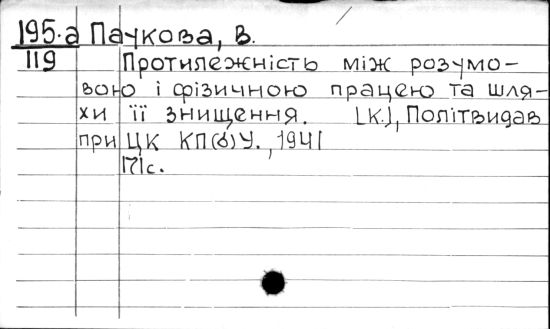 195.а Паукова, В.
119 Протилежність між розумо-
вою і фізичною працею та шля-
хи її знищення. [К.], Політвидав
при ЦК КП(б)У., 1941
171с.